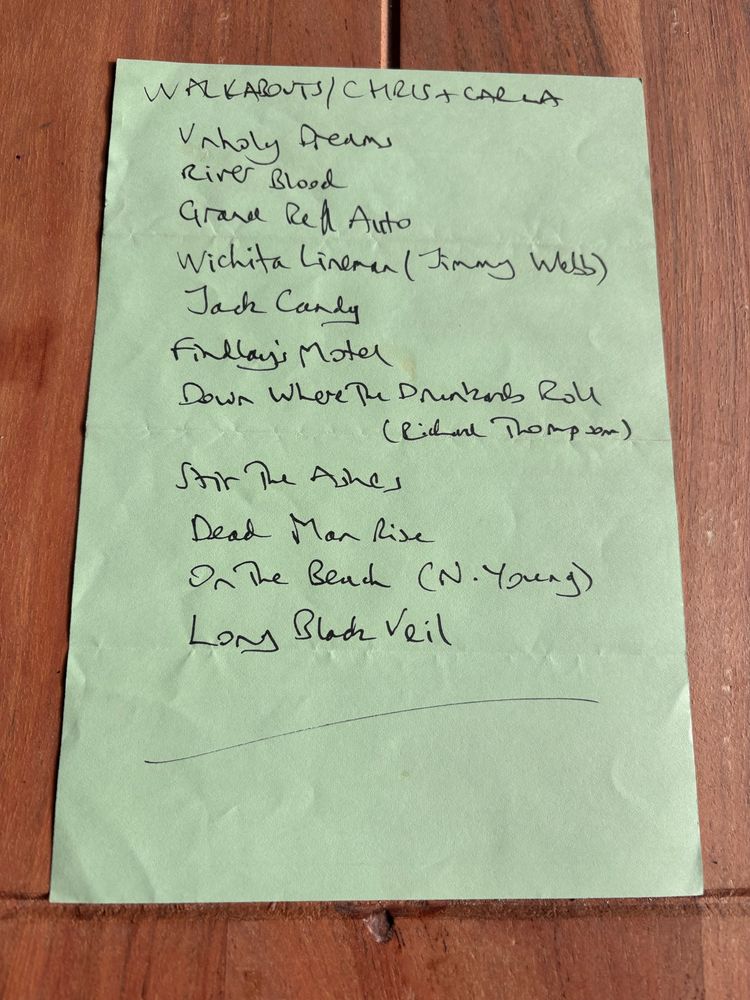 WALKABOUTS/CHRIS + CARLA
Unholy Dreams
River Blood
Grand Red Auto
Wichita Lineman (Jimmy Webb)
Jack Candy
Findlay's Motel
Down Where The Drunkards Roll
(Richard Thompson)
Stir The Ashes
Dead Man Rise
On The Beach (N. Young)
Long Black Veil